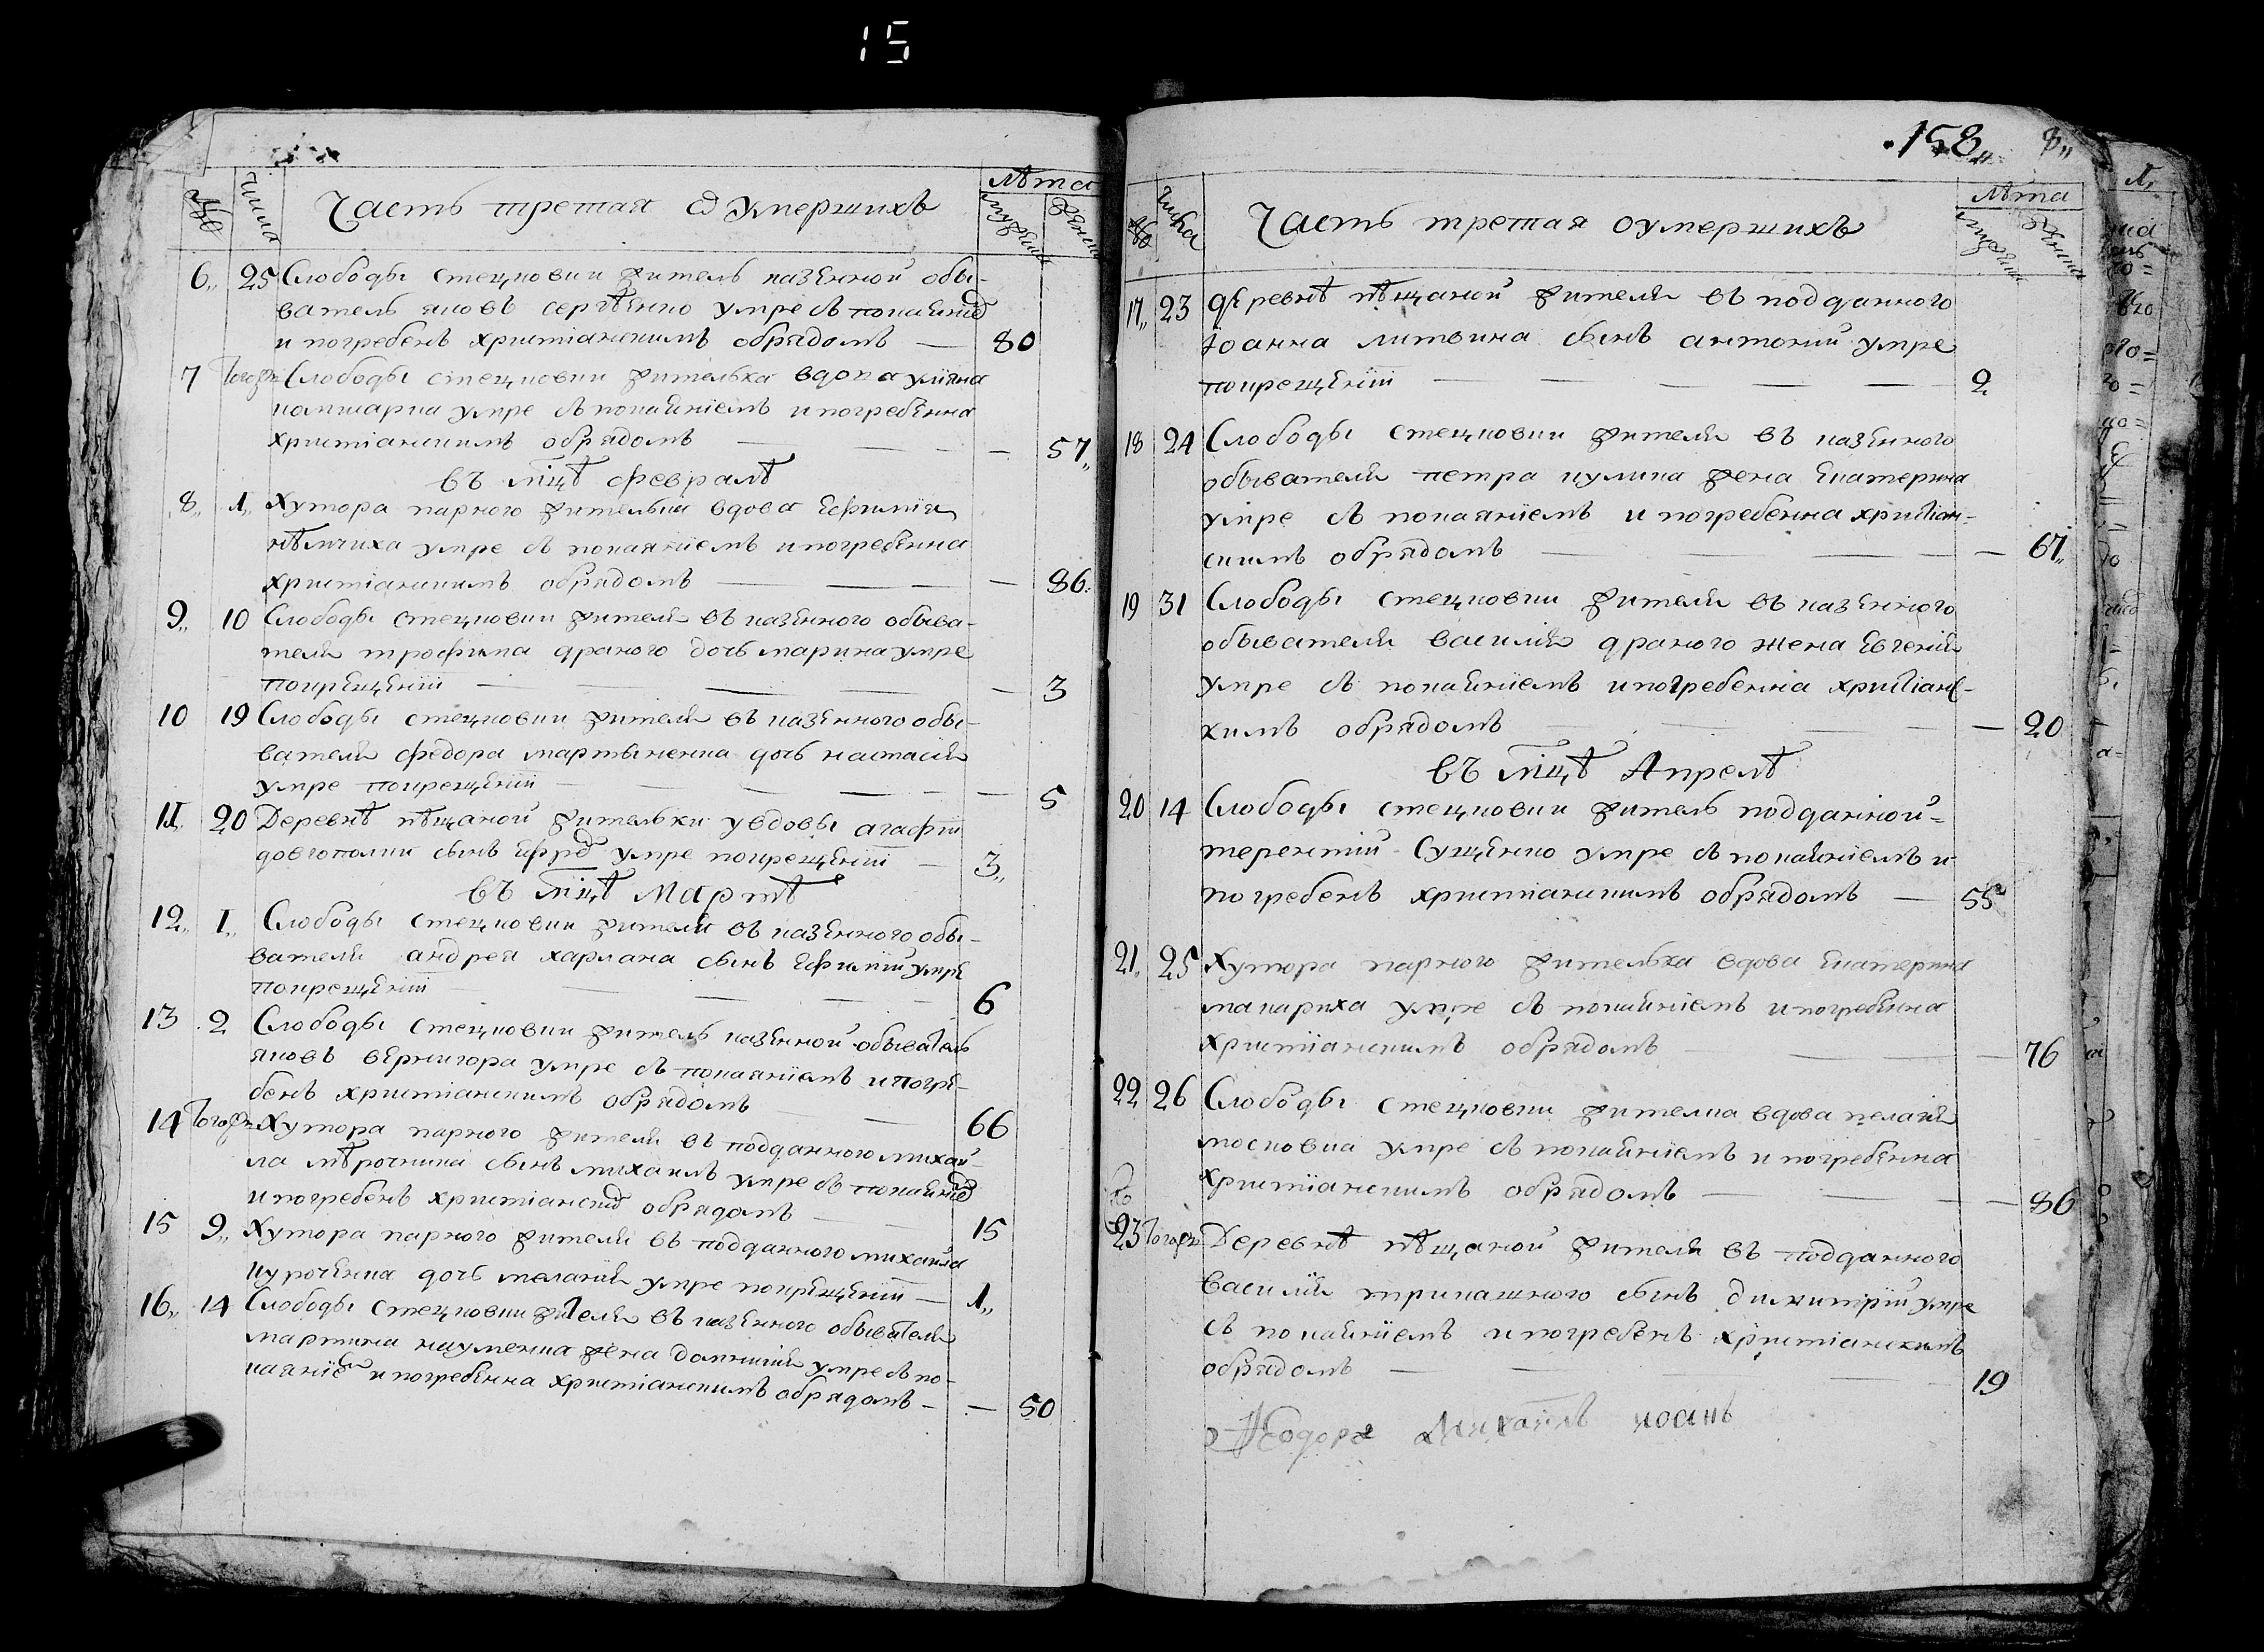 15
№ Числа Часть третая о умершихъ Лѣта мужеска женска
6,, 25 Слободы стецковки житель казенной обы-
ватель яковъ сергѣенко умре съ покаяніе
и погребенъ христіанскимъ обрядомъ — 80
7 Того ж Слободы стецковки жителька вдова улияна
умре съ покаяніемъ и погребенна
христіанскимъ обрядомъ — 57,,
въ мцѣ февралѣ
8,, 1,, Хутора парного жителька вдова Ефимія
нѣмчиха умре съ покаяніемъ и погребенна
христіанскимъ обрядомъ — 86
9,, 10 Слободы стецковки жителя въ казенного обыва-
теля трофима драного дочь марина умре
по крещеніи — 3
10 19 Слободы стецковки жителя въ казенного обы-
вателя федора мартыненка дочь настасія
умре по крещеніи — 5
11. 20 Деревнѣ пѣщаной жительки у вдовы агафіи
довгополки сынъ умре по крещеніи — 3,,
въ мцѣ Мартѣ
12,, 1,, Слободы стецковки жителя въ казенного обы-
вателя андрея харлана сынъ Ефимій умре
по крещеніи 6
13 2 Слободы стецковки житель казенной обыватель
яковъ вернигора умре съ покаяніемъ и погре-
бенъ христіанскимъ обрядомъ 66
14 Того ж Хутора парного жителя въ подданного михай-
ла мѣрочника сынъ михаилъ умре съ покаяніе
и погребенъ христіанским обрядомъ 15
15 9,, Хутора парного жителя въ подданного михаила
куроченка дочь меланія умре по крещеніи — 1,,
16,, 14 Слободы стецковки жителя въ казенного обывателя
мартина науменка жена домникія умре съ по-
каяніем и погребенна христіанскимъ обрядомъ — 50
158,, 8,,
№ числа Часть третая о умершихъ Лѣта мужеска женска
17,, 23 Деревнѣ пѣщаной жителя въ подданного
Іоанна литвина сынъ антоній умре
по крещеніи — 2
18 24 Слободы стецковки жителя въ казенного
обывателя петра кулика жена Екатерина
умре съ покаяніемъ и погребенна христіан-
скимъ обрядомъ — 67,,
19 31 Слободы стецковки жителя въ казенного
обывателя василія драного жена Евгенія
умре съ покаяніемъ и погребенна христіанс-
химъ обрядомъ — 20
въ мцѣ Апрелѣ
20 14 Слободы стецковки житель подданной-
терентій Сущенко умре съ покаяніемъ и
погребенъ христіанскимъ обрядомъ — 55
21. 25 Хутора парного жителька вдова Екатерина
макариха умре съ покаяніемъ и погребенна
христіанскимъ обрядомъ — 76
22 26 Слободы стецковки жителка вдова пелагія
московка умре съ покаяніемъ и погребенна
христіанскимъ обрядомъ — 86
23 Того ж Деревнѣ пѣщаной жителя въ подданного
василія трикашного сынъ димитрій умре
съ покаяніемъ и погребенъ христіанскимъ
обрядомъ — 19
Михаилъ иоанъ